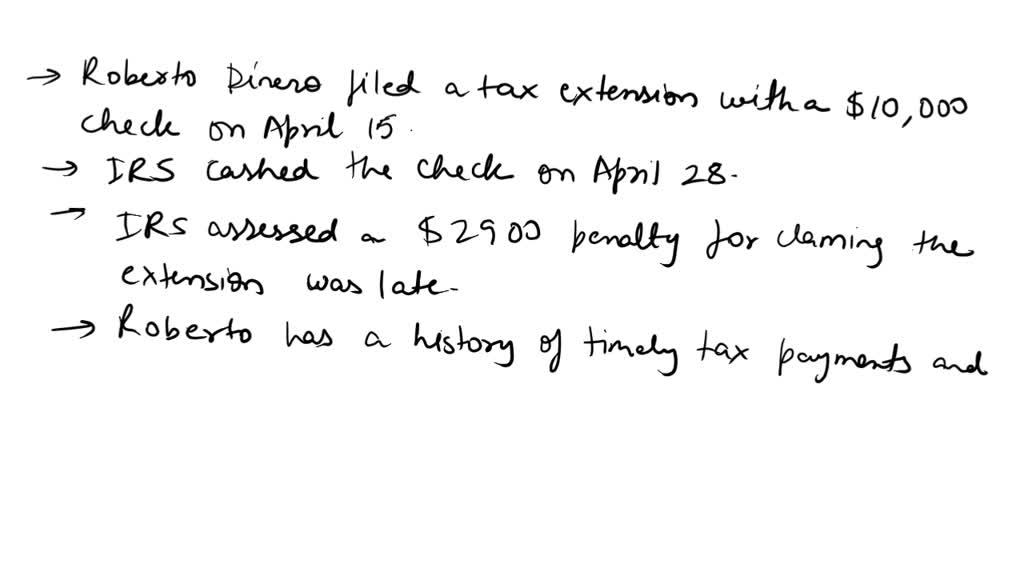 → Roberto Dinero filed a tax extension with a $10,000
check on April 15.
→ IRS cashed the check on April 28.
→ IRS assessed a $2900 penalty for claming the
extension was late.
→ Roberto has a history of timely tax payments and